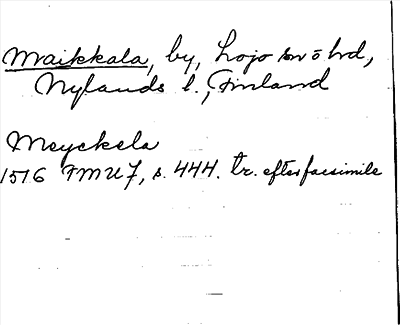 Maikkala, by, Lojo sn o hd,
Nylands l., Finland
Meyckela
1516 FMU 7, s. 444. tr. efter facsimile